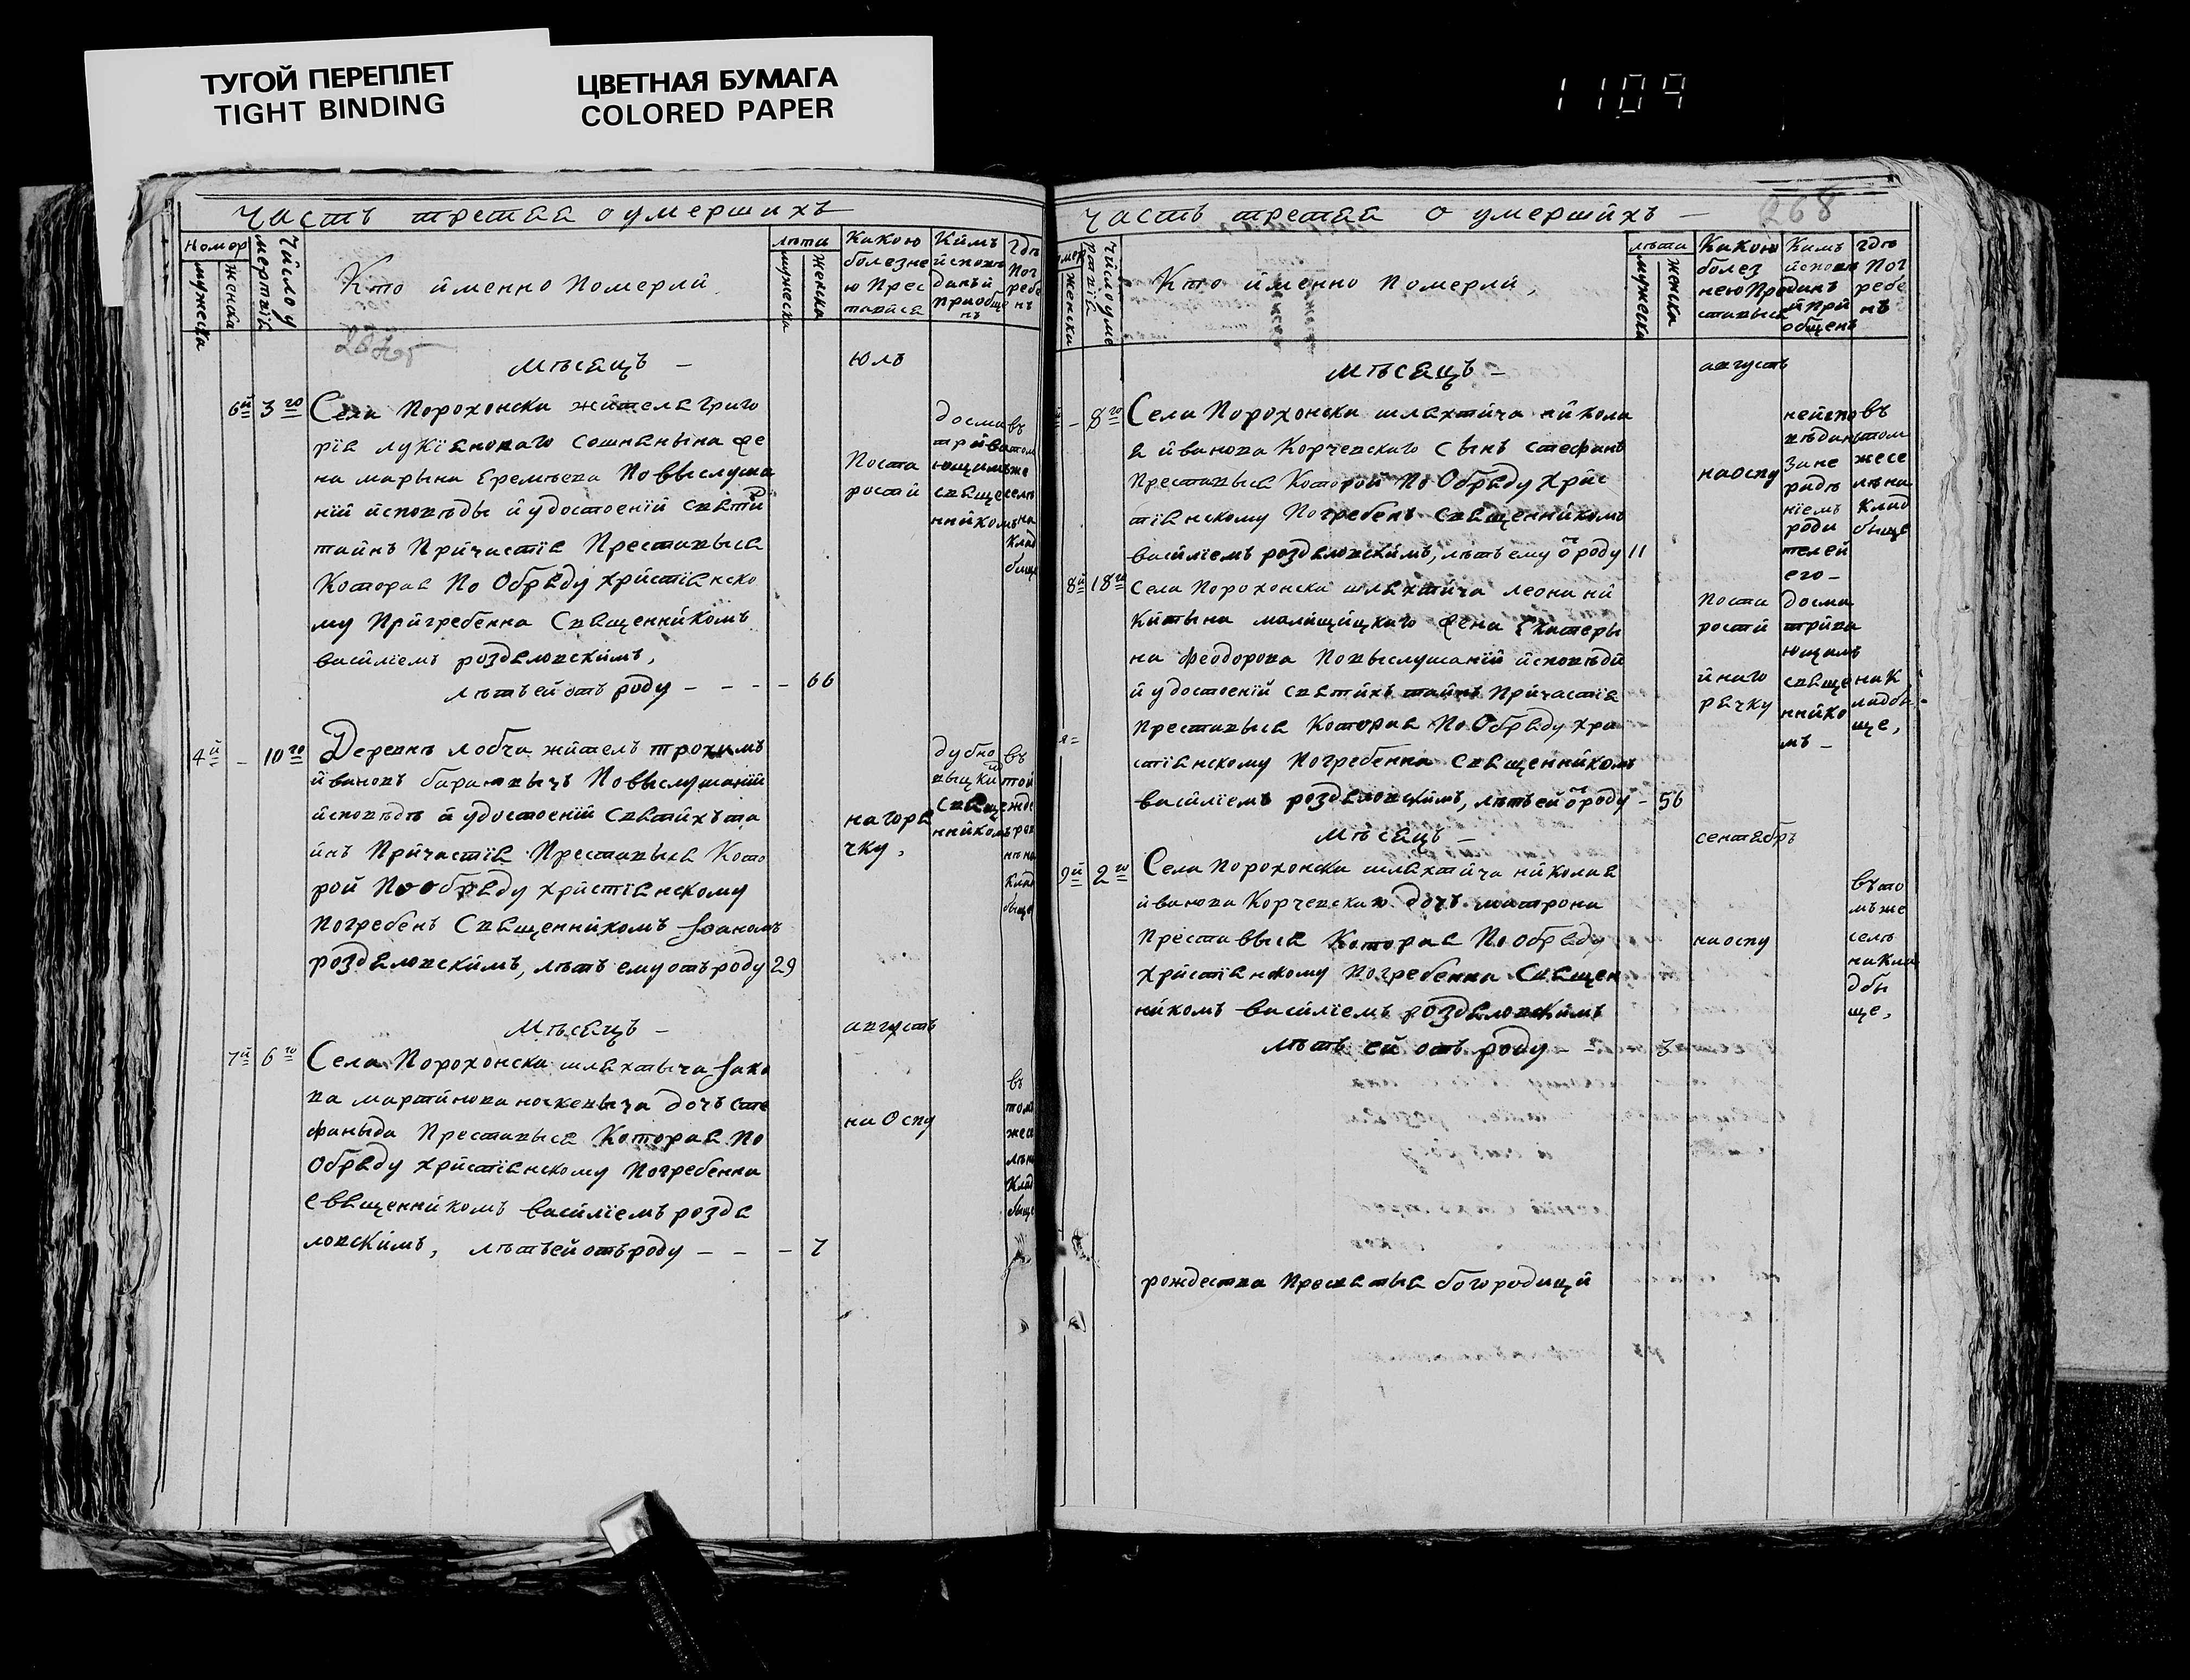 ТУГОЙ ПЕРЕПЛЕТ
TIGHT BINDING
ЦВЕТНАЯ БУМАГА
COLORED PAPER
1109
Часть третая о умершихъ
Номер
мужеска
женска
Число у
мертвія
Кто именно Померли
лѣта
мужеска
женска
Какою
болезне
ю Прес
тавися
Кимъ
исповѣ
данъ и
приобще
нъ
Гдѣ
Пог
ребе
нъ
Мѣсяцъ –
Юль
6й 3го Села Порохонска жителя Григо
рія
жена марына Еремѣева По выслуша
ніи исповѣды и удостоеніи Святи
тайнъ Причастія Преставыся
Которая По Обряду христіанско
му Пригребенна Священникомъ
василіемъ роздяловскимъ,
лѣтъ ей отъ роду – – – – 66
Поста
рости
досма
трива
ющимъ
свяще
нникомъ
въ
том
же
селѣ
на
клад
быще
4й – 10го Деревнѣ лобча жителъ трохимъ
ивановъ барановычъ По выслушаніи
исповѣдѣ и удостоеніи Святихъ та
инъ Причастія Преставыся Кото
рой По обряду христіанскому
Погребенъ Священникомъ Іоаномъ
роздяловскимъ, лѣтъ ему отъ роду 29
на горя
чку,
дубно
выцки
Священникомъ
въ
той
же
клад
быще
Мѣсяцъ –
августъ
7й 6го Села Порохонска шляхтыча Іако
ва мартинова ночкевыча дочъ Сте
фаныда Преставыся Которая По
Обряду христіанскому Погребенна
Священникомъ василіемъ роздя
ловскимъ, лѣтъ ей отъ роду – – – 7
на Оспу
въ
том
же се
лѣ на
Клад
быще
Часть третая о умершихъ –
268
женска
Число уме
ртвія
Кто именно Померли,
лѣта
мужеска
женска
Какою
болез
нею Пре
ставыся
Кимъ
исповѣ
данъ
и при
общенъ
гдѣ
Пог
ребе
нъ
Мѣсяцъ –
августъ
– 8го Села Порохонска шляхтича никола
я иванова Корчевскаго Сынъ стефанъ
Преставыся Которой По Обряду Хрис
тіанскому Погребенъ Священникомъ
василіемъ роздяловскимъ, лѣтъ ему о роду 11
на оспу
неиспо
вѣданъ
За не
радѣ
ніемъ
роди
телей
его –
въ
том
же се
лѣ на
Клад
быще
8й 18го Села Порохонска шляхтича леона ни
китына малищицкаго жена Екатеры
на феодорова По выслушаніи исповѣди
и удостоеніи Святихъ тайнъ Причастія
Преставыся Которая По Обряду хри
стіанскому Погребенна Священникомъ
василіемъ роздяловскимъ, лѣтъ ей о роду – 56
Поста
рости
и на го
рячку
досма
трива
ющимъ
свяще
ннико
мъ –
на К
ладбы
ще,
Мѣсяцъ –
сентябръ
9й 2го Села Порохонска шляхтича николая
иванова Корчевскаго дочъ матрона
Преставвыся Которая По обряду
Христіанскому Погребенна Священ
никомъ василіемъ роздяловскимъ
лѣтъ ей отъ роду – – 3
на оспу
въ то
мъ же
селѣ
на Кла
дбы
ще,
рождества Пресвятыя богородици